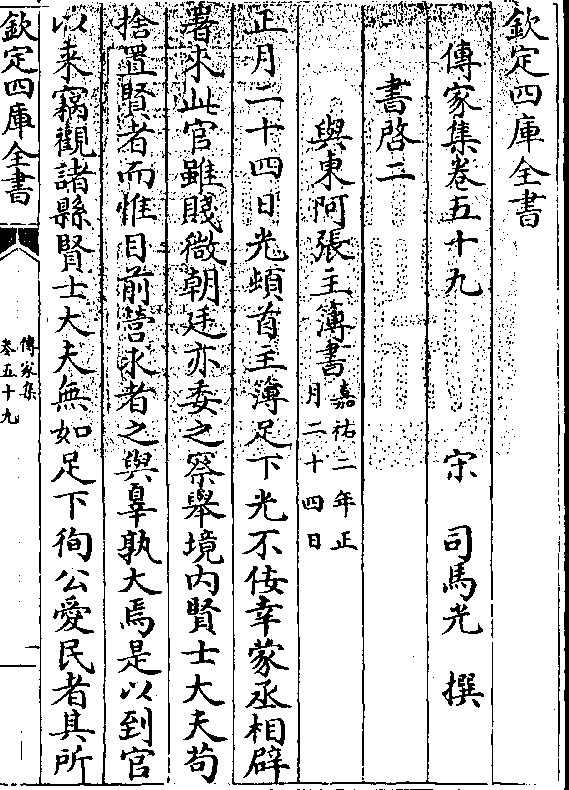 欽定四庫全書
傳家集卷五十九　宋　司馬光　撰
書啓二
與東阿張主簿書嘉祐二年正
月二十四日
正月二十四日光頓首主簿足下光不佞幸蒙丞相辟
署求此官雖賤微朝廷亦委之察舉境內賢士大夫苟
捨置賢者而惟目前營求者之與辠孰大焉是以到官
以来竊觀諸縣賢士大夫無如足下徇公愛民者其所
欽定四庫全書
傳家集
卷五十九
一